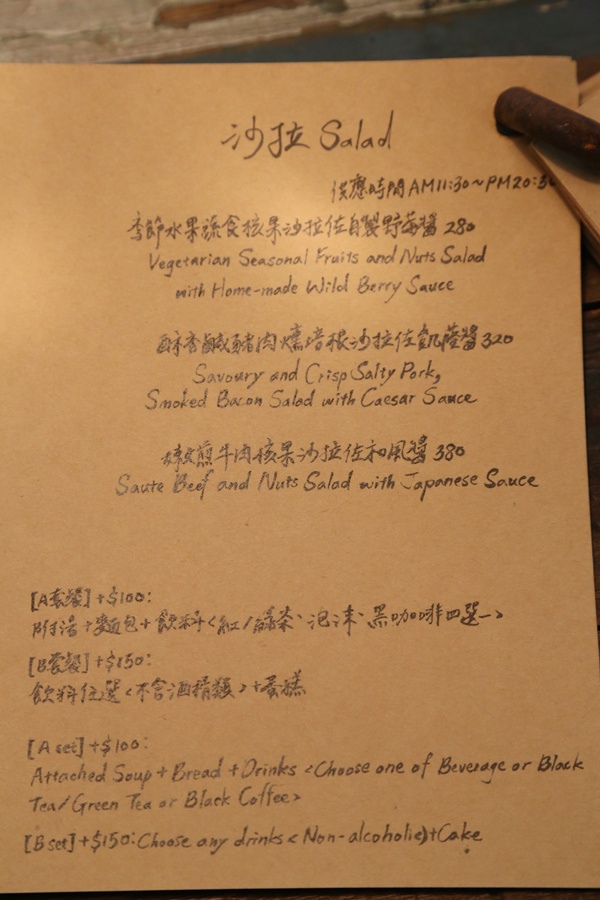 沙拉 Salad
供應時間 AM11:30~PM20:30
季節水果蔬食核果沙拉佐自製野莓醬 280
Vegetarian Seasonal Fruits and Nuts Salad
with Home-made Wild Berry Sauce
酥香鹹豬肉燻培根沙拉佐凱薩醬 320
Savoury and Crisp Salty Pork,
Smoked Bacon Salad with Caesar Sauce
煎牛肉核果沙拉佐和風醬 380
Saute Beef and Nuts Salad with Japanese Sauce
[A套餐]+$100:
附湯+麵包+飲料<紅/綠茶、泡沫、黑咖啡四選一>
[B套餐]+$150:
飲料任選<不含酒精類>+蛋糕
[A set]+$100:
Attached Soup+Bread+Drinks <Choose one of Beverage or Black
Tea/Green Tea or Black Coffee>
[B set]+$150:Choose any drinks<Non-alcoholic)+Cake